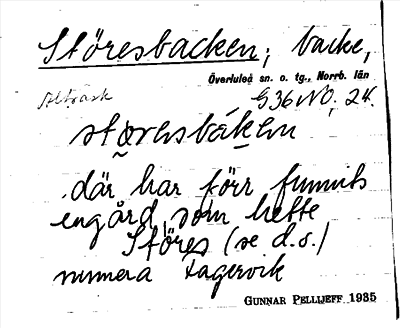 Störesbacken; backe,
Överluleå sn. o. tg., Norrb. län
Alträsk
G36NO; 24.
störesbáken
där har förr funnits
en gård, som hette
Störes (se d.s.)
numera Fagervik
GUNNAR PELLIJEFF 1935